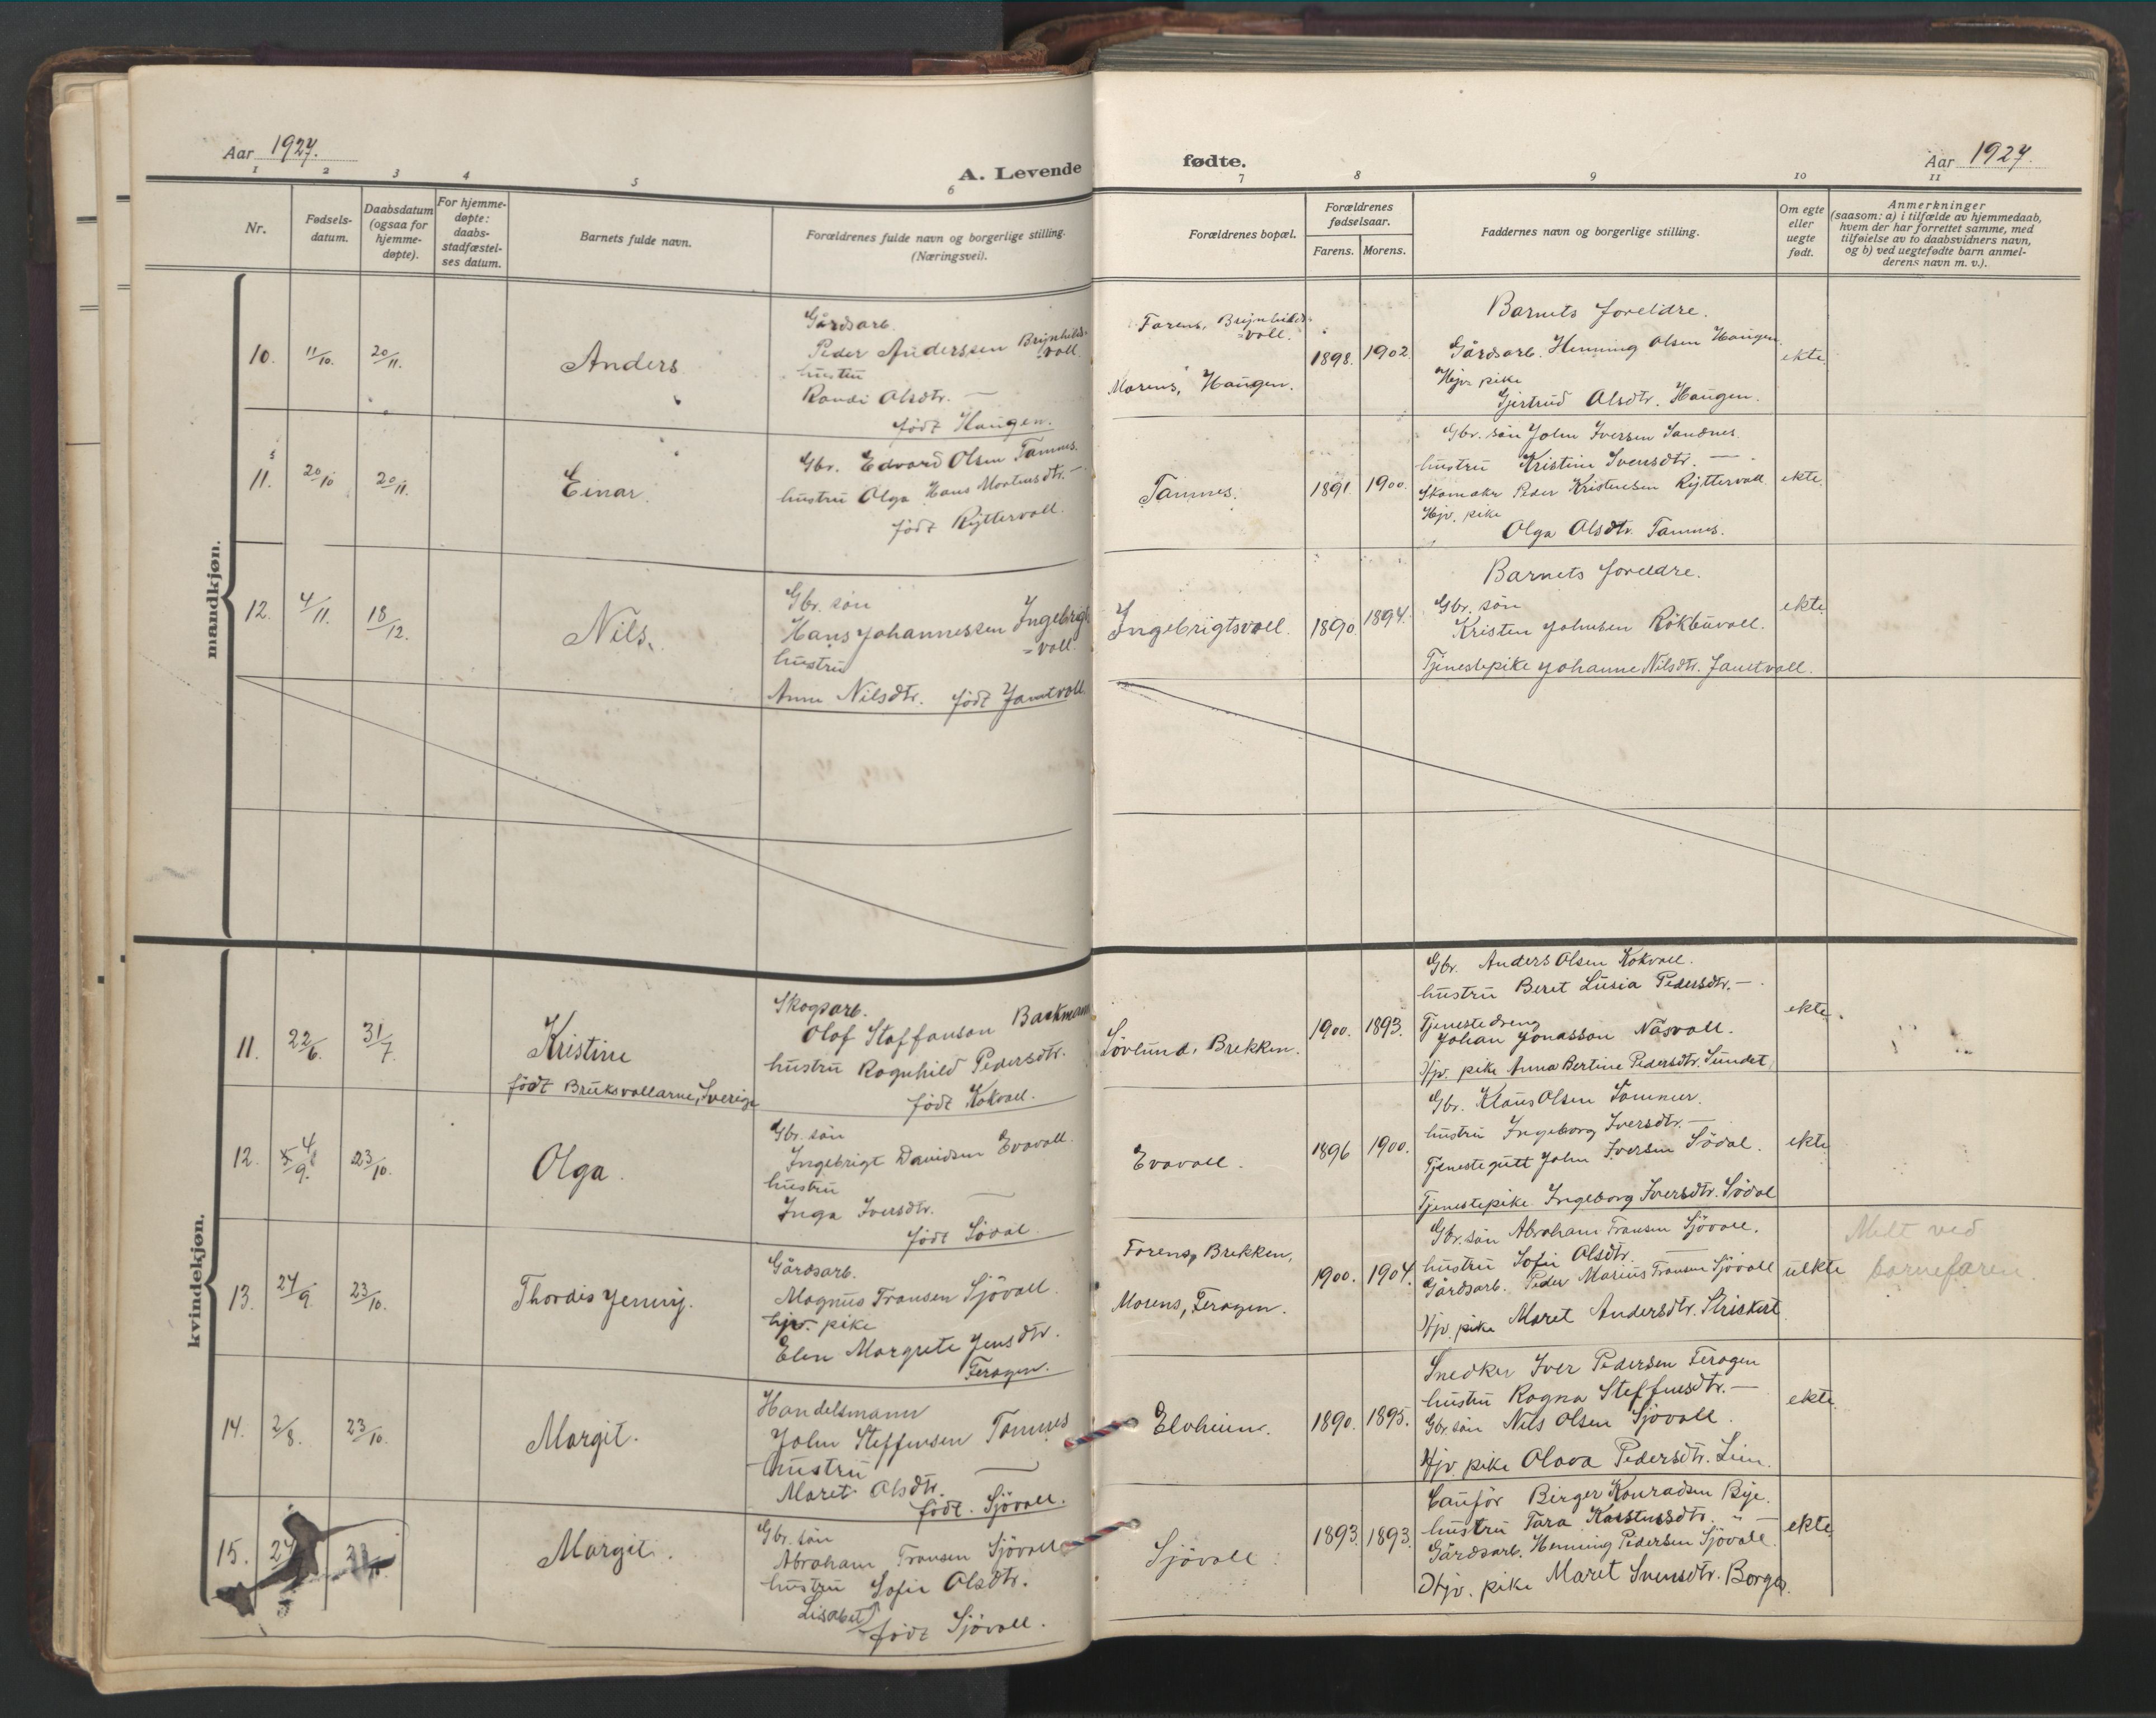 Aar 1927.
A. Levende
fødte.
Aar 1927.
1 2 3 4 5 6 7 8 9 10 11
Nr.
Fødsels-
datum.
Daabsdatum
(ogsaa for
hjemme-
døpte).
For hjemme-
døpte:
daabs-
stadfæstel-
ses datum.
Barnets fulde navn.
Forældrenes fulde navn og borgerlige stilling.
(Næringsvei).
Forældrenes bopæl.
Forældrenes
fødselsaar.
Farens. Morens.
Faddernes navn og borgerlige stilling.
Om egte
eller
uegte
født.
Anmerkninger
(saasom: a) i tilfælde av hjemmedaab,
hvem der har forrettet samme, med
tilføielse av to daabsvidners navn,
og b) ved uegtefødte barn anmel-
derens navn m. v.).
mandkjøn.
10. 11/10. 20/11. Anders
Gårdsarb.
Peder Anderssen Brynhilds-
voll.
hustru
Randi Olsdtr. —
født Haugen.
Farens, Brynhilds-
voll.
Morens, Haugen.
1898. 1902.
Barnets foreldre.
Gårdsarb. Henning Olsen Haugen.
Hjv. pike
Gjertrud Olsdtr. Haugen.
ekte.
11. 20/10 20/11. Einar.
Gbr. Edvard Olsen Tamnes.
hustru Olga Hans Moatusdtr. —
født Ryttervoll.
Tamnes.
1891. 1900.
Gbr. søn John Iversen Sandnes.
hustru Kristine Svensdtr. —
Skomaker Peder Kristensen Ryttervoll.
Hjv. pike
Olga Olsdtr. Tamnes.
ekte.
12. 4/11. 18/12. Nils.
Gbr. søn
Hans Johannessen Ingebrigts
=voll.
hustru
Anne Nilsdtr. født Jamtvoll.
Ingebrigtsvoll.
1890. 1894.
Barnets foreldre.
Gbr. søn
Kristen Johnsen Rökbuvoll.
Tjenestepike Johanne Nilsdtr. Jamtvoll.
ekte.
kvindekjøn.
11. 22/6. 31/7. Kristine
født Bruksvollarne, Sverige
Skogsarb.
Olof Staffanson Backman
hustru Ragnhild Pedersdtr.
født Kokvoll.
Lövlund, Brekken.
1900. 1893.
Gbr. Anders Olsen Kokvoll.
hustru Beret Lusia Pedersdtr. —
Tjenestedreng
Johan Jonasson Näsvall.
Hjv. pike Anna Bertine Pedersdtr. Sundet.
ekte.
12. 4/9. 23/10. Olga.
Gbr. søn
Ingebrigt Davidsen Evavoll.
hustru
Inga Iversdtr. —
født Södal.
Evavoll.
1896 1900.
Gbr. Klaus Olsen Sommer.
hustru Ingeborg Iversdtr. —
Tjenestegutt John Iversen Södal.
Tjenestepike. Ingeborg Iversdtr. Södal
ekte
13. 24/9. 23/10. Thordis Jenny.
Gårdsarb.
Magnus Fransen Sjövoll.
hjv. pike
Elen Margrete Jensdtr.
Feragen.
Farens, Brekken,
Morens, Feragen.
1900. 1904.
Gbr. søn Abraham Fransen Sjövoll.
hustru Sofie Olsdtr. —
Gårdsarb. Peder Marius Fransen Sjövoll
Hjv. pike Maret Andersdtr.
uekte
Melt ved
barnefaren.
14. 2/8. 23/10. Margit.
Handelsmann
John Steffensen Tamnes
hustru —
Maret Olsdtr.
født. Sjövoll.
Elvheim.
1890. 1895.
Snedker Iver Pedersen Feragen
hustru Ragna Steffensdtr. —
Gbr. søn Nils Olsen Sjövoll.
Hjv. pike Olava Pedersdtr. Lien.
ekte.
15. Margit.
Gbr. søn
Abraham Fransen Sjövoll
hustru Sofie Olsdtr.
Lisabet
født Sjövoll.
Sjövoll.
1893. 1893.
Birger Konradsen Bye.
hustru Tara Karstensdtr. " —
Gårdsarb. Henning Pedersen Sjövoll.
Hjv. pike Maret Svensdtr. Borgos.
ekte.